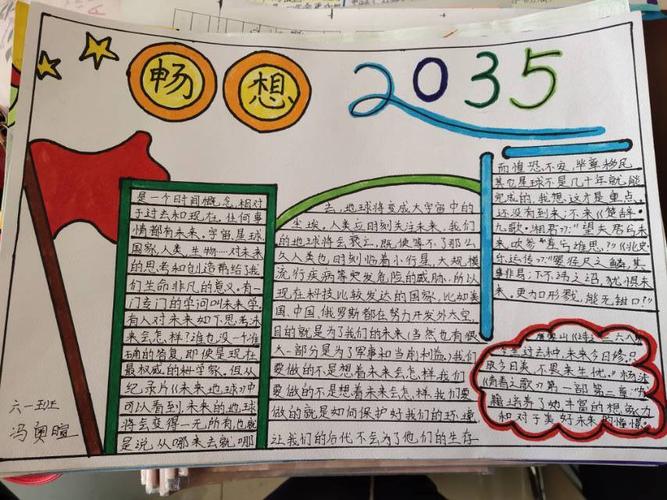 畅想2035
是一个时间概念,相对
于过去和现在。任何事
情都有未来。宇宙、星球、
国家、人类、生物……对未来
的思考和创造带给了我
们生命非凡的意义。有一
门专门的学问叫未来学。
有人对未来如下思考:未
来会怎样?谁也没一个准
确的答复,即使是现在
最权威的科学家。但从
纪录片《未来的地球》中
可以看到,未来的地球
将会变得一无所有,也就
是说从哪来去就哪
去,地球将变成大宇宙中的
尘埃,人类应时刻关注未来,我们
的地球将会衰亡,既使等不了那么
久人类也时刻临着小行星、大规模
流行疾病等突发危险的威胁,所以
现在科技比较发达的国家,比如美
国、中国、俄罗斯都在努力开发外太空,
目的就是为了我们的未来(当然也有很
大一部分是为了军事和当前利益)我们
要做的不是想着未来会怎样,我们
要做的不是想着未来会怎样,我们要
做的就是如何保护好我们的环境,
让我们的后代不会为了他们的生存
而惶恐、不安,毕竟移民
其他星球不是几十年就能
完成的,我想,这才是重点。
还没有到来;不来《楚辞·
九歌·湘君》:"望夫君兮未
来,吹参差兮谁思?"《北史·
更加形戮,能无钳口?"
今生过去种,未来今日修,只
和对于美好未来的憧憬。
六一班
冯奥暄